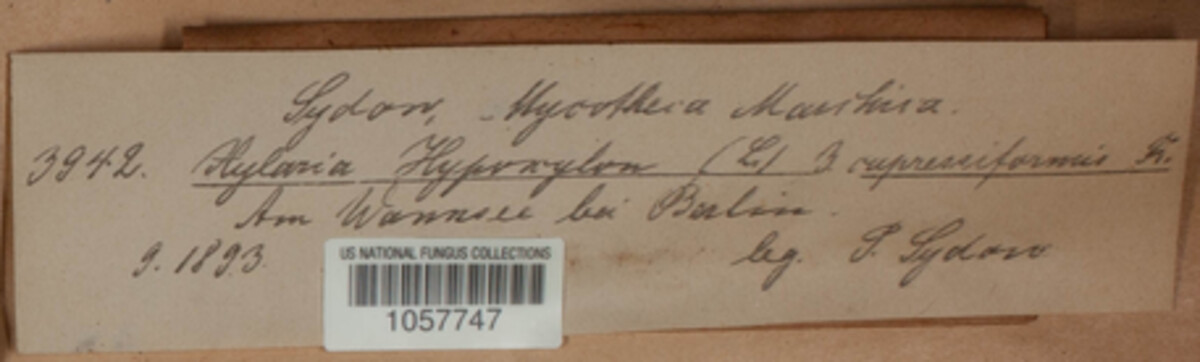 Sydow, Mycotheca Marchica.
3942. Xylaria Hypoxylon (L.) β cupressiformis Fr.
Am Wannsee bei Berlin.
9. 1893.
leg. P. Sydow
US NATIONAL FUNGUS COLLECTIONS
1057747